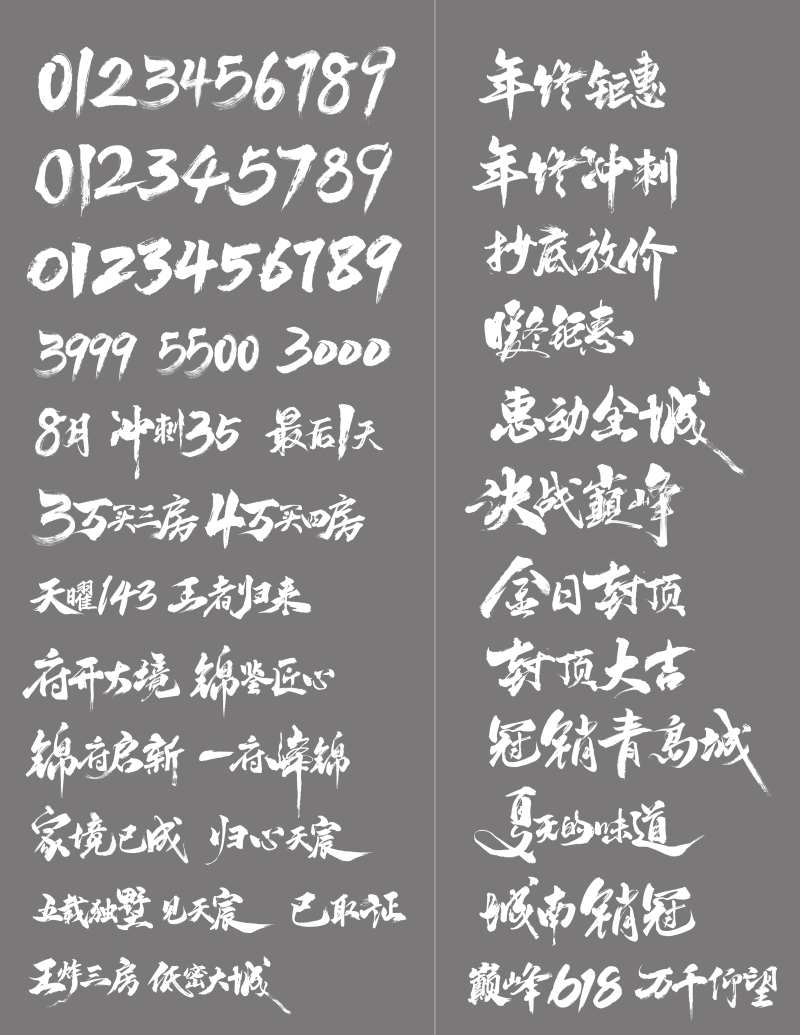 0123456789
012345789
0123456789
3999 5500 3000
8月 冲刺35 最后1天
3万买三房 4万买四房
天曜143 王者归来
府开大境 锦鉴匠心
锦府启新 一府峰锦
家境已成 归心天宸
五载独墅 见天宸 已取证
王炸三房 低密大城
年终钜惠
年终冲刺
抄底放价
暖冬钜惠
惠动全城
决战巅峰
金日封顶
封顶大吉
冠销青岛城
夏天的味道
城南销冠
巅峰618 万千仰望